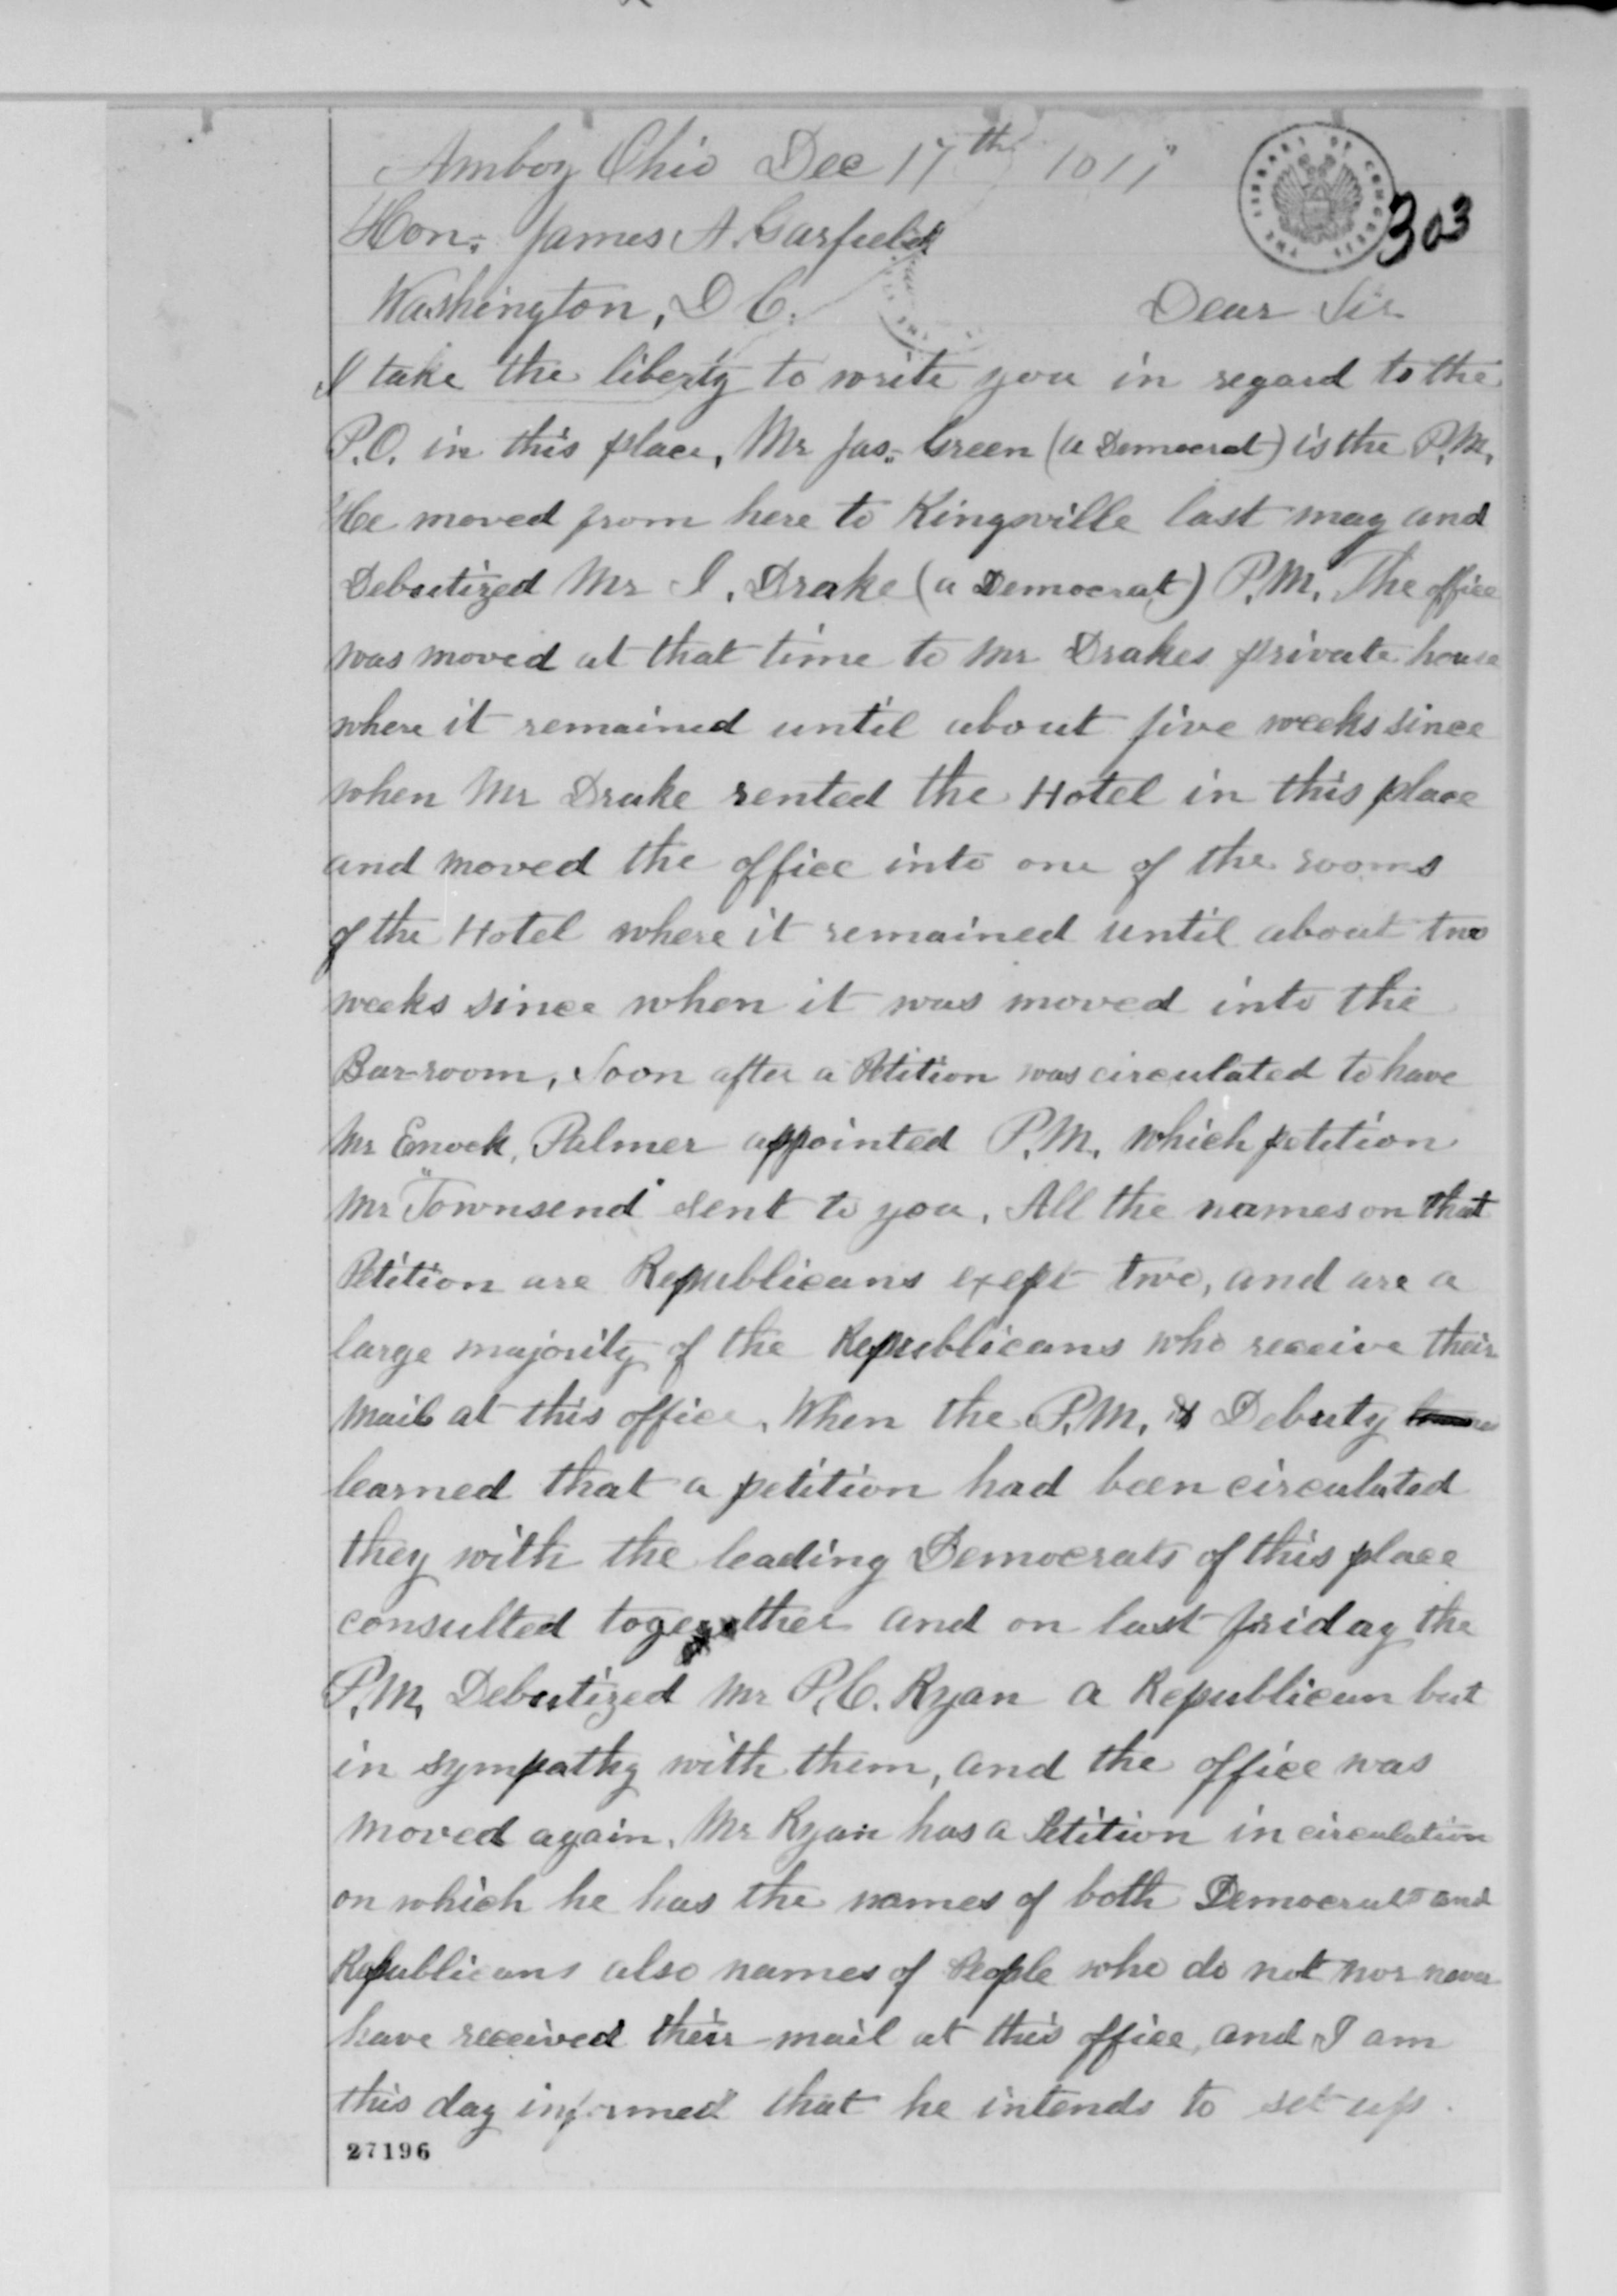 Amboy Ohio Dec 17th
THE LIBRARY OF CONGRESS
303
Hon. James A. Garfield
Washington, D C.
Dear Sir
I take the liberty to write you in regard to the
P.O. in this place, Mr Jas. Green (a Democrat) is the P.M.
He moved from here to Kingsville last may and
Debutized Mr I. Drake (a Democrat) P.M. The office
was moved at that time to Mr Drakes private house
where it remained until about five weeks since
when Mr Drake rented the Hotel in this place
and moved the office into one of the rooms
of the Hotel where it remained until about two
weeks since when it was moved into the
Bar-room, Soon after a Petition was circulated to have
Mr Enock, Palmer appointed P.M. which petition
Mr "Townsend" sent to you, All the names on that
Petition are Republicans exept two, and are a
large majority of the Republicans who receive their
mail at this office, When the P.M. & Debuty
learned that a petition had been circulated
they with the leading Democrats of this place
consulted together and on last friday the
P.M. Debutized Mr P.C. Ryan a Republican but
in sympathy with them, and the office was
moved again, Mr Ryan has a Petition in circulation
on which he has the names of both Democrats and
Republicans also names of People who do not nor never
have received their mail at this office, and I am
this day informed that he intends to set up
27196